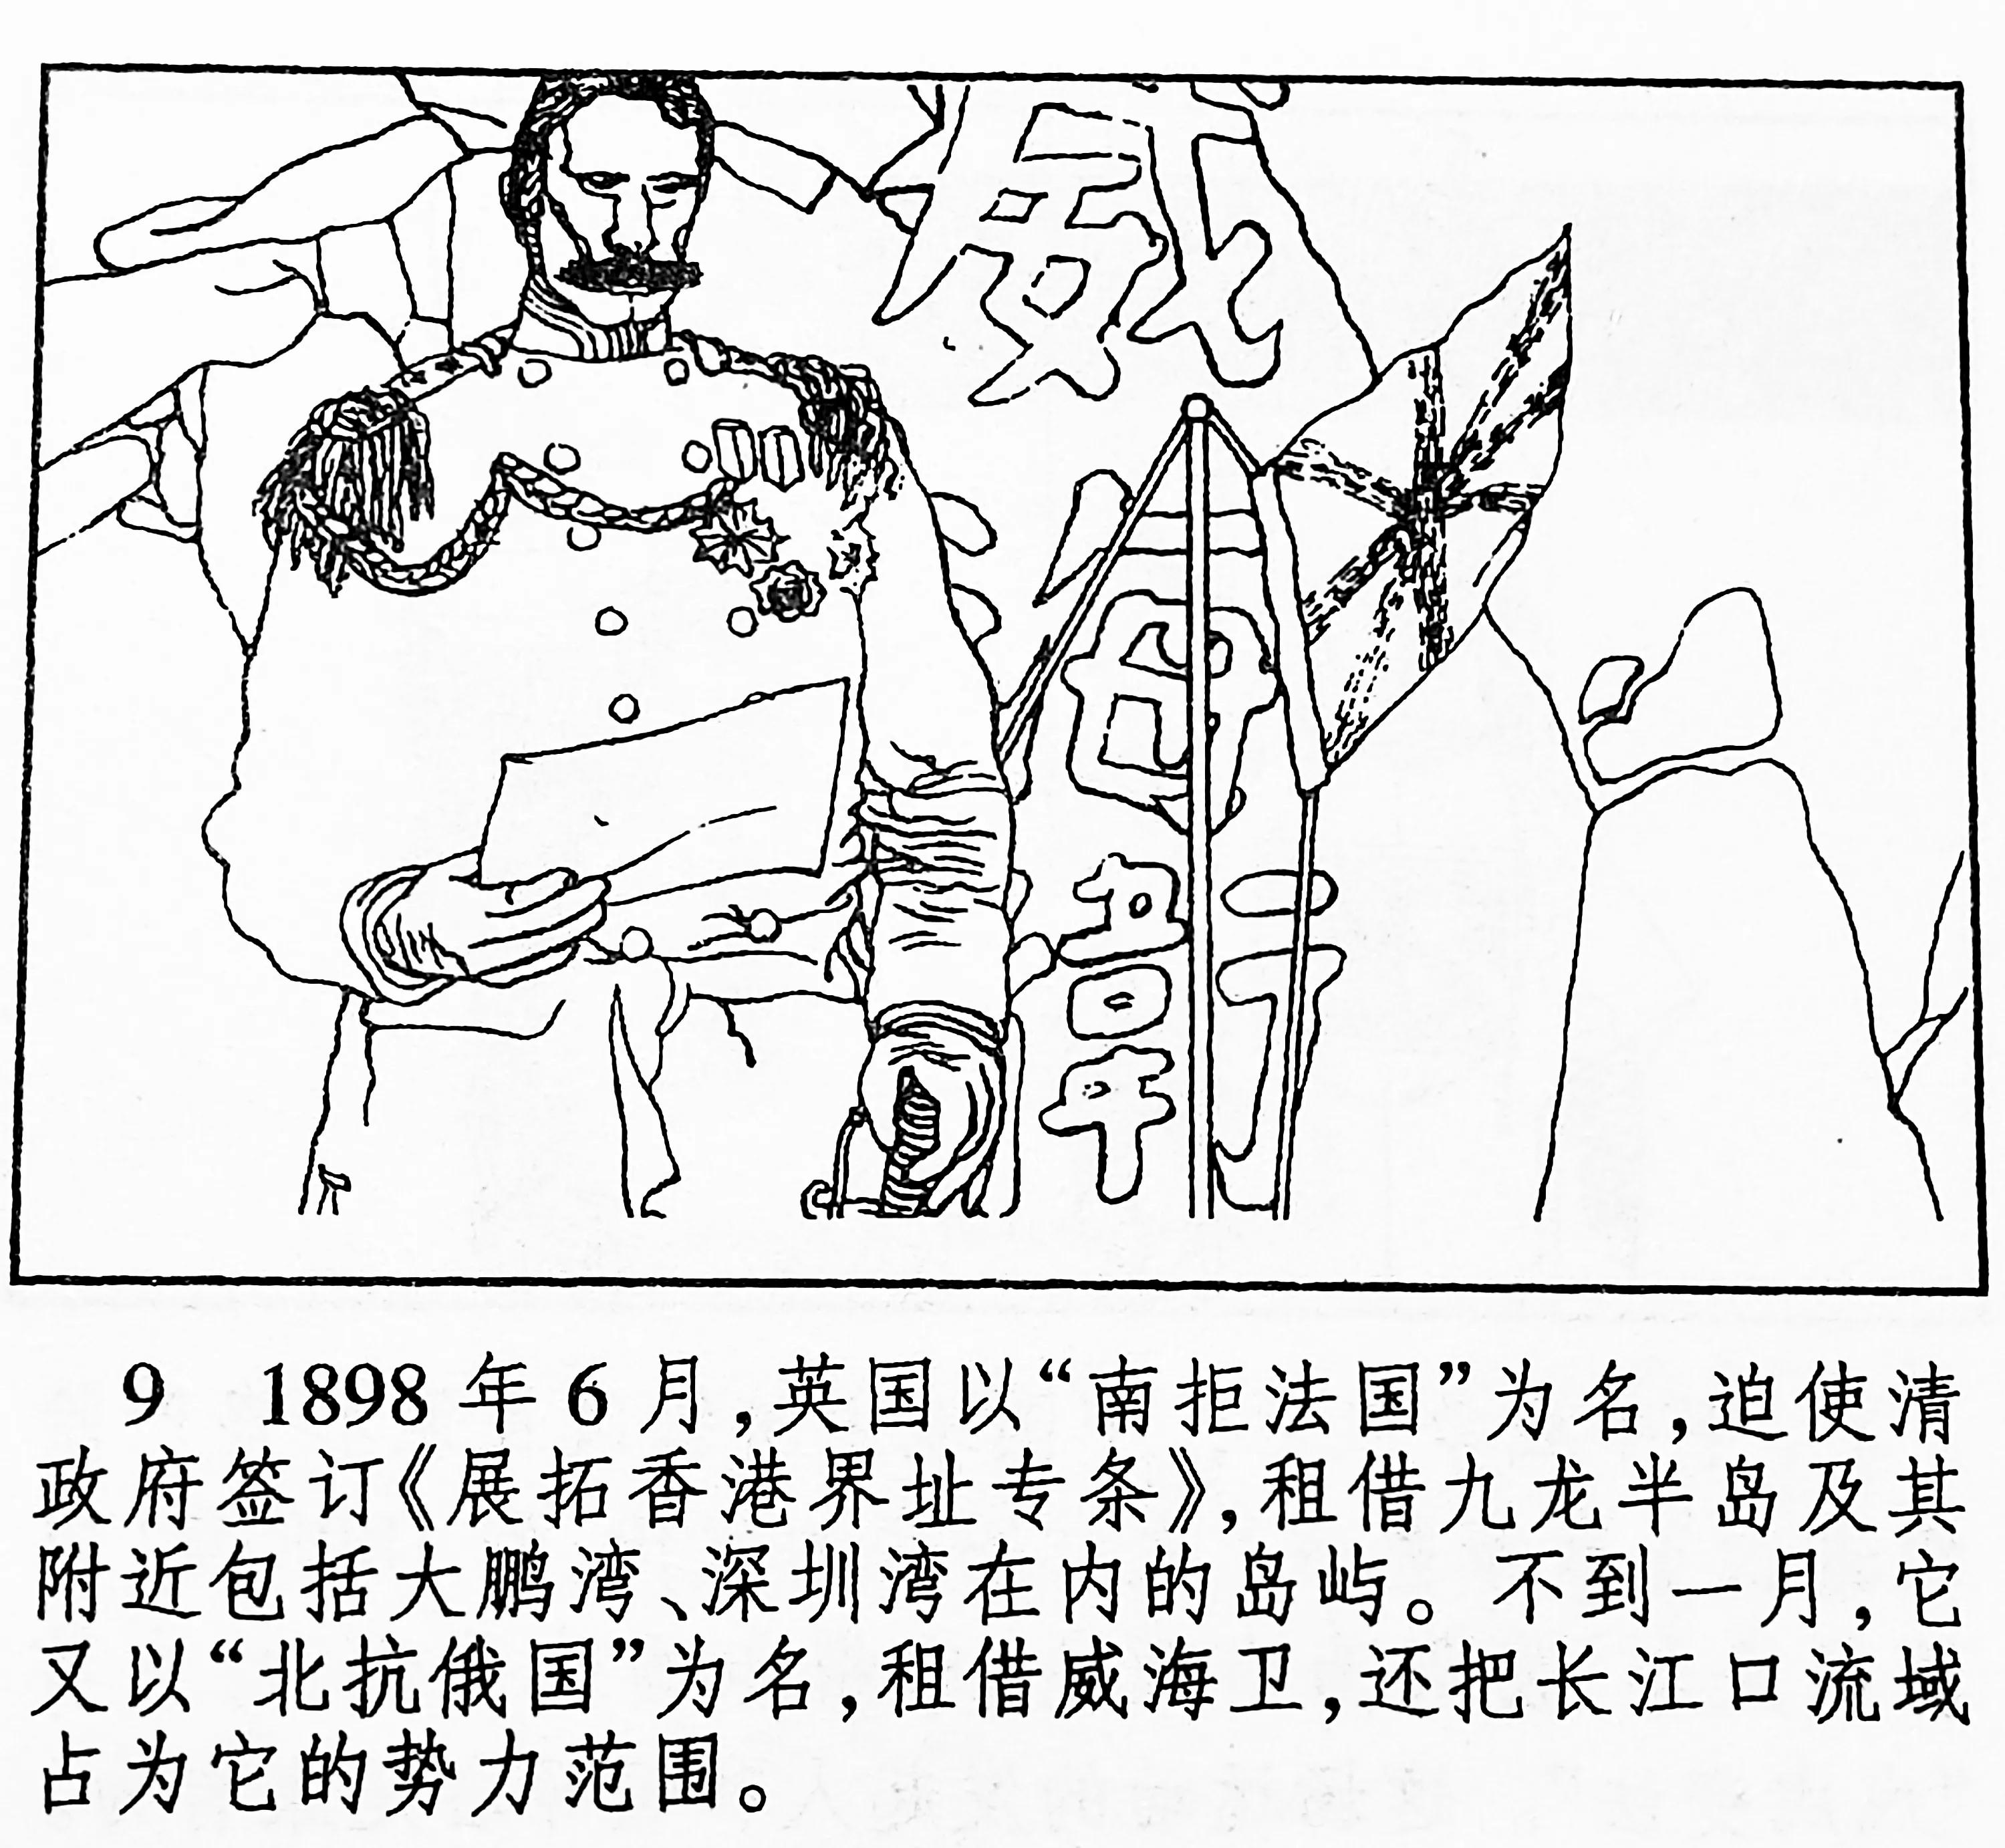 威
海
衛
9 1898年6月,英国以“南拒法国”为名,迫使清
政府签订《展拓香港界址专条》,租借九龙半岛及其
附近包括大鹏湾、深圳湾在内的岛屿。不到一月,它
又以“北抗俄国”为名,租借威海卫,还把长江口流域
占为它的势力范围。